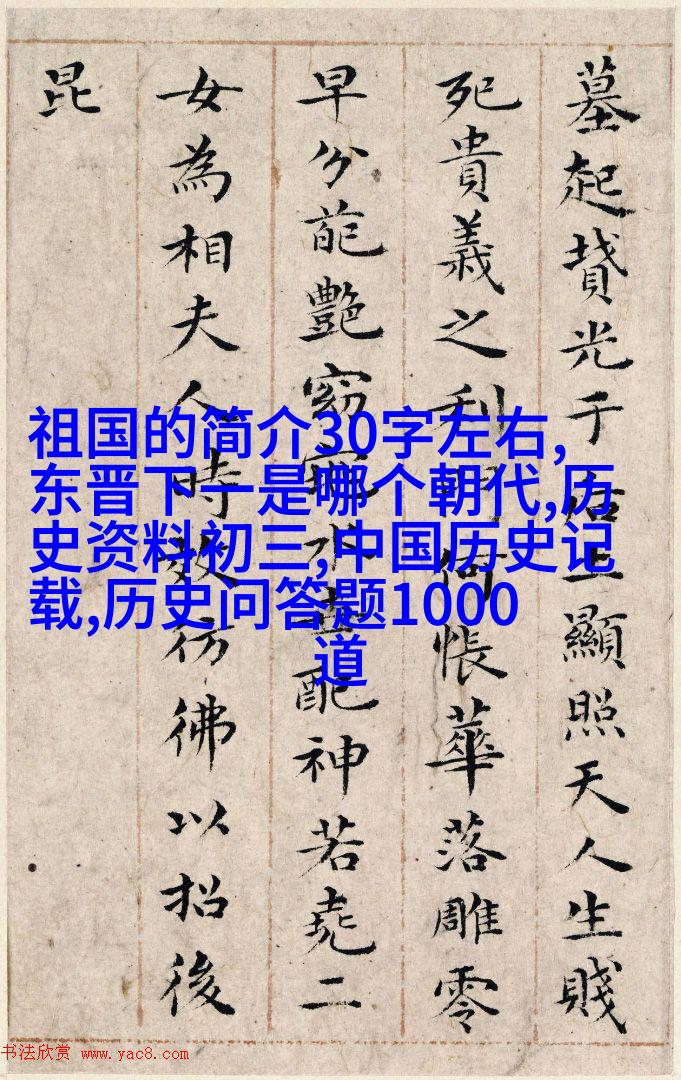 墓起墳光于后土顯照天人生賤
死貴義之利門何悵華落雕零
早分葩艷窈窕永世配神若堯二
女為相夫人時效彷彿以招後
昆
祖国的简介30字左右,
东晋下一是哪个朝代,历
史资料初三,中国历史记
载,历史问答题1000
道
书法欣赏 www.yac8.com